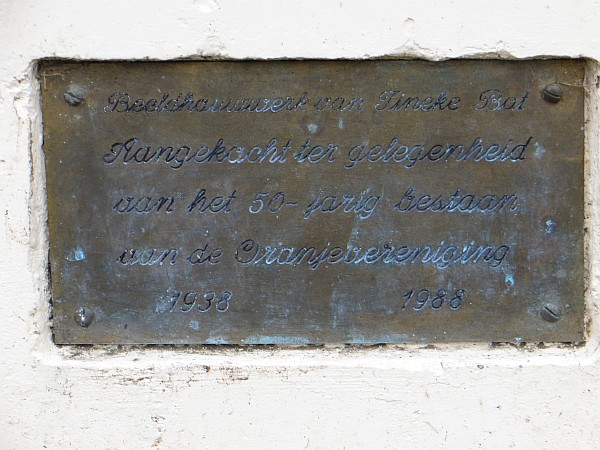 Beeldhouwwerk van Tineke Bot
Aangekocht ter gelegenheid
van het 50-jarig bestaan
van de Oranjevereniging
1938 1988